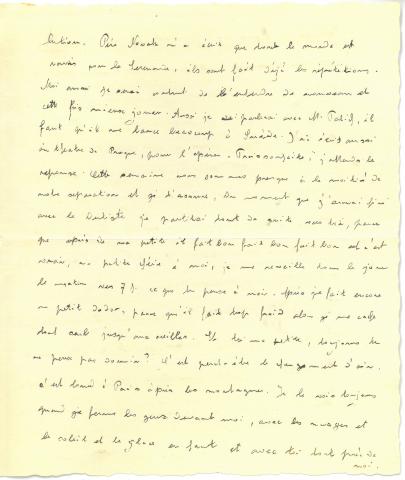 lution. Père Novak m'a écrit que tout le monde est
ravis pour la Serenade, ils ont fait déjà les répétitions.
Moi aussi je serai content de l'entendre de nouveau et
cette fois mieux jouer. Aussi je parlerai avec M.
faut qu'il me lance beaucoup à J'ai écris aussi
au théâtre de Prague, pour l'opéra. j'attends la
reponse. Cette semaine nous sommes presque à la moitié de
notre separation et je t'assure, du moment que j'aurai fini
avec le Dentiste je partirai tout de suite vers toi, parce
que après de ma petite il fait bon fait bon fait bon et c'est
vrais, ma petite à moi, je me reveille dans le
le matin vers 7 h. ce que tu pense à moi. Après je fait encore
un petit dodo, parce qu'il fait trop froid alors je me cache
tout jusqu'au oreilles. Et toi ma petite, toujours tu
ne peux pas dormir? C'est peut-être le changement d'air,
c'est à Paris après les montagnes. Je te vois toujours
quand je ferme les yeux devant moi, avec les nuages et
le soleil et la glace en haut et avec toi tout près de
moi.